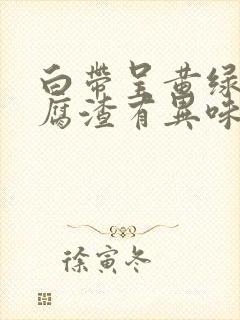 白帶呈黄绿
腐渣有異味
徐寅冬